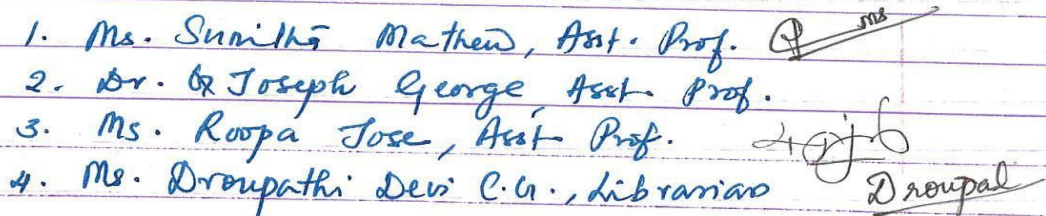 1. Ms. Sunitha Mathew, Asst. Prof.
2. Dr. Joseph George, Asst. Prof.
3. Ms. Roopa Jose, Asst Prof.
4. Ms. Droupathi Devi C.G., Librarian Droupal